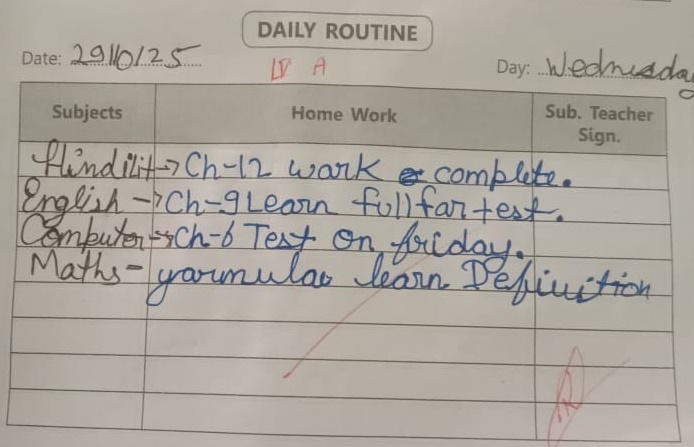 DAILY ROUTINE
Date: 29/10/25
IV A
Day: Wednesday
Subjects Home Work Sub. Teacher Sign.
Hindi lit → Ch-12 work complete.
English → Ch-9 Learn full far test.
Computer → Ch-6 Test on friday.
Maths - learn Definition